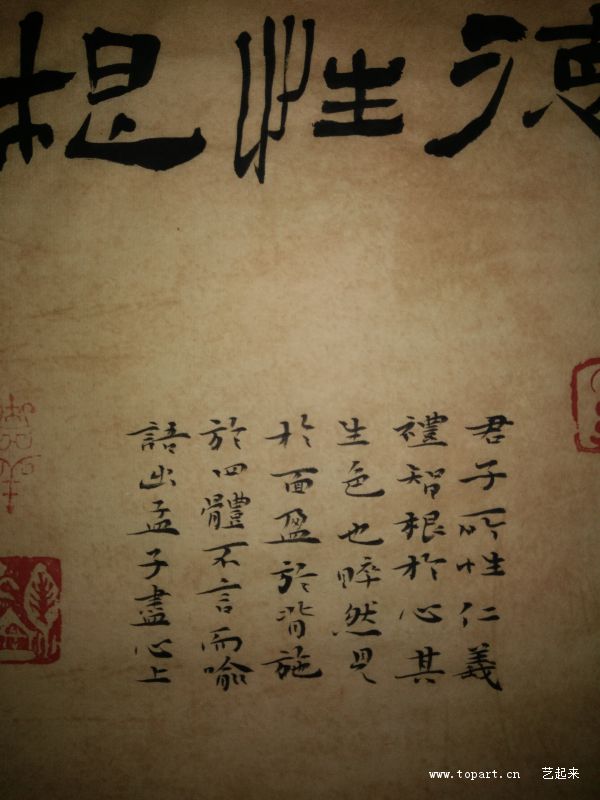 德性根
君子所性仁義
禮智根於心其
生色也睟然見
於面盈於背施
於四體不言而喻
語出孟子盡心上
www.topart.cn 艺起来